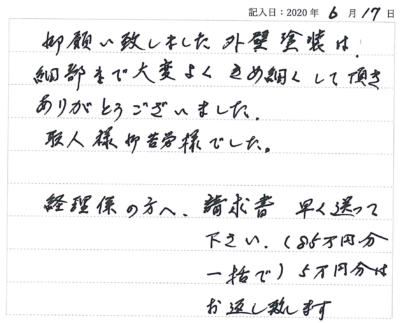 記入日：2020 年 6 月 17 日
御願い致しました 外壁塗装は、
細部まで大変よく きめ細くして頂き
ありがとうございました。
職人様御苦労様でした。
経理係の方へ、 請求書 早く送って
下さい。(85万円分
一括で) 5万円分は
お返し致します